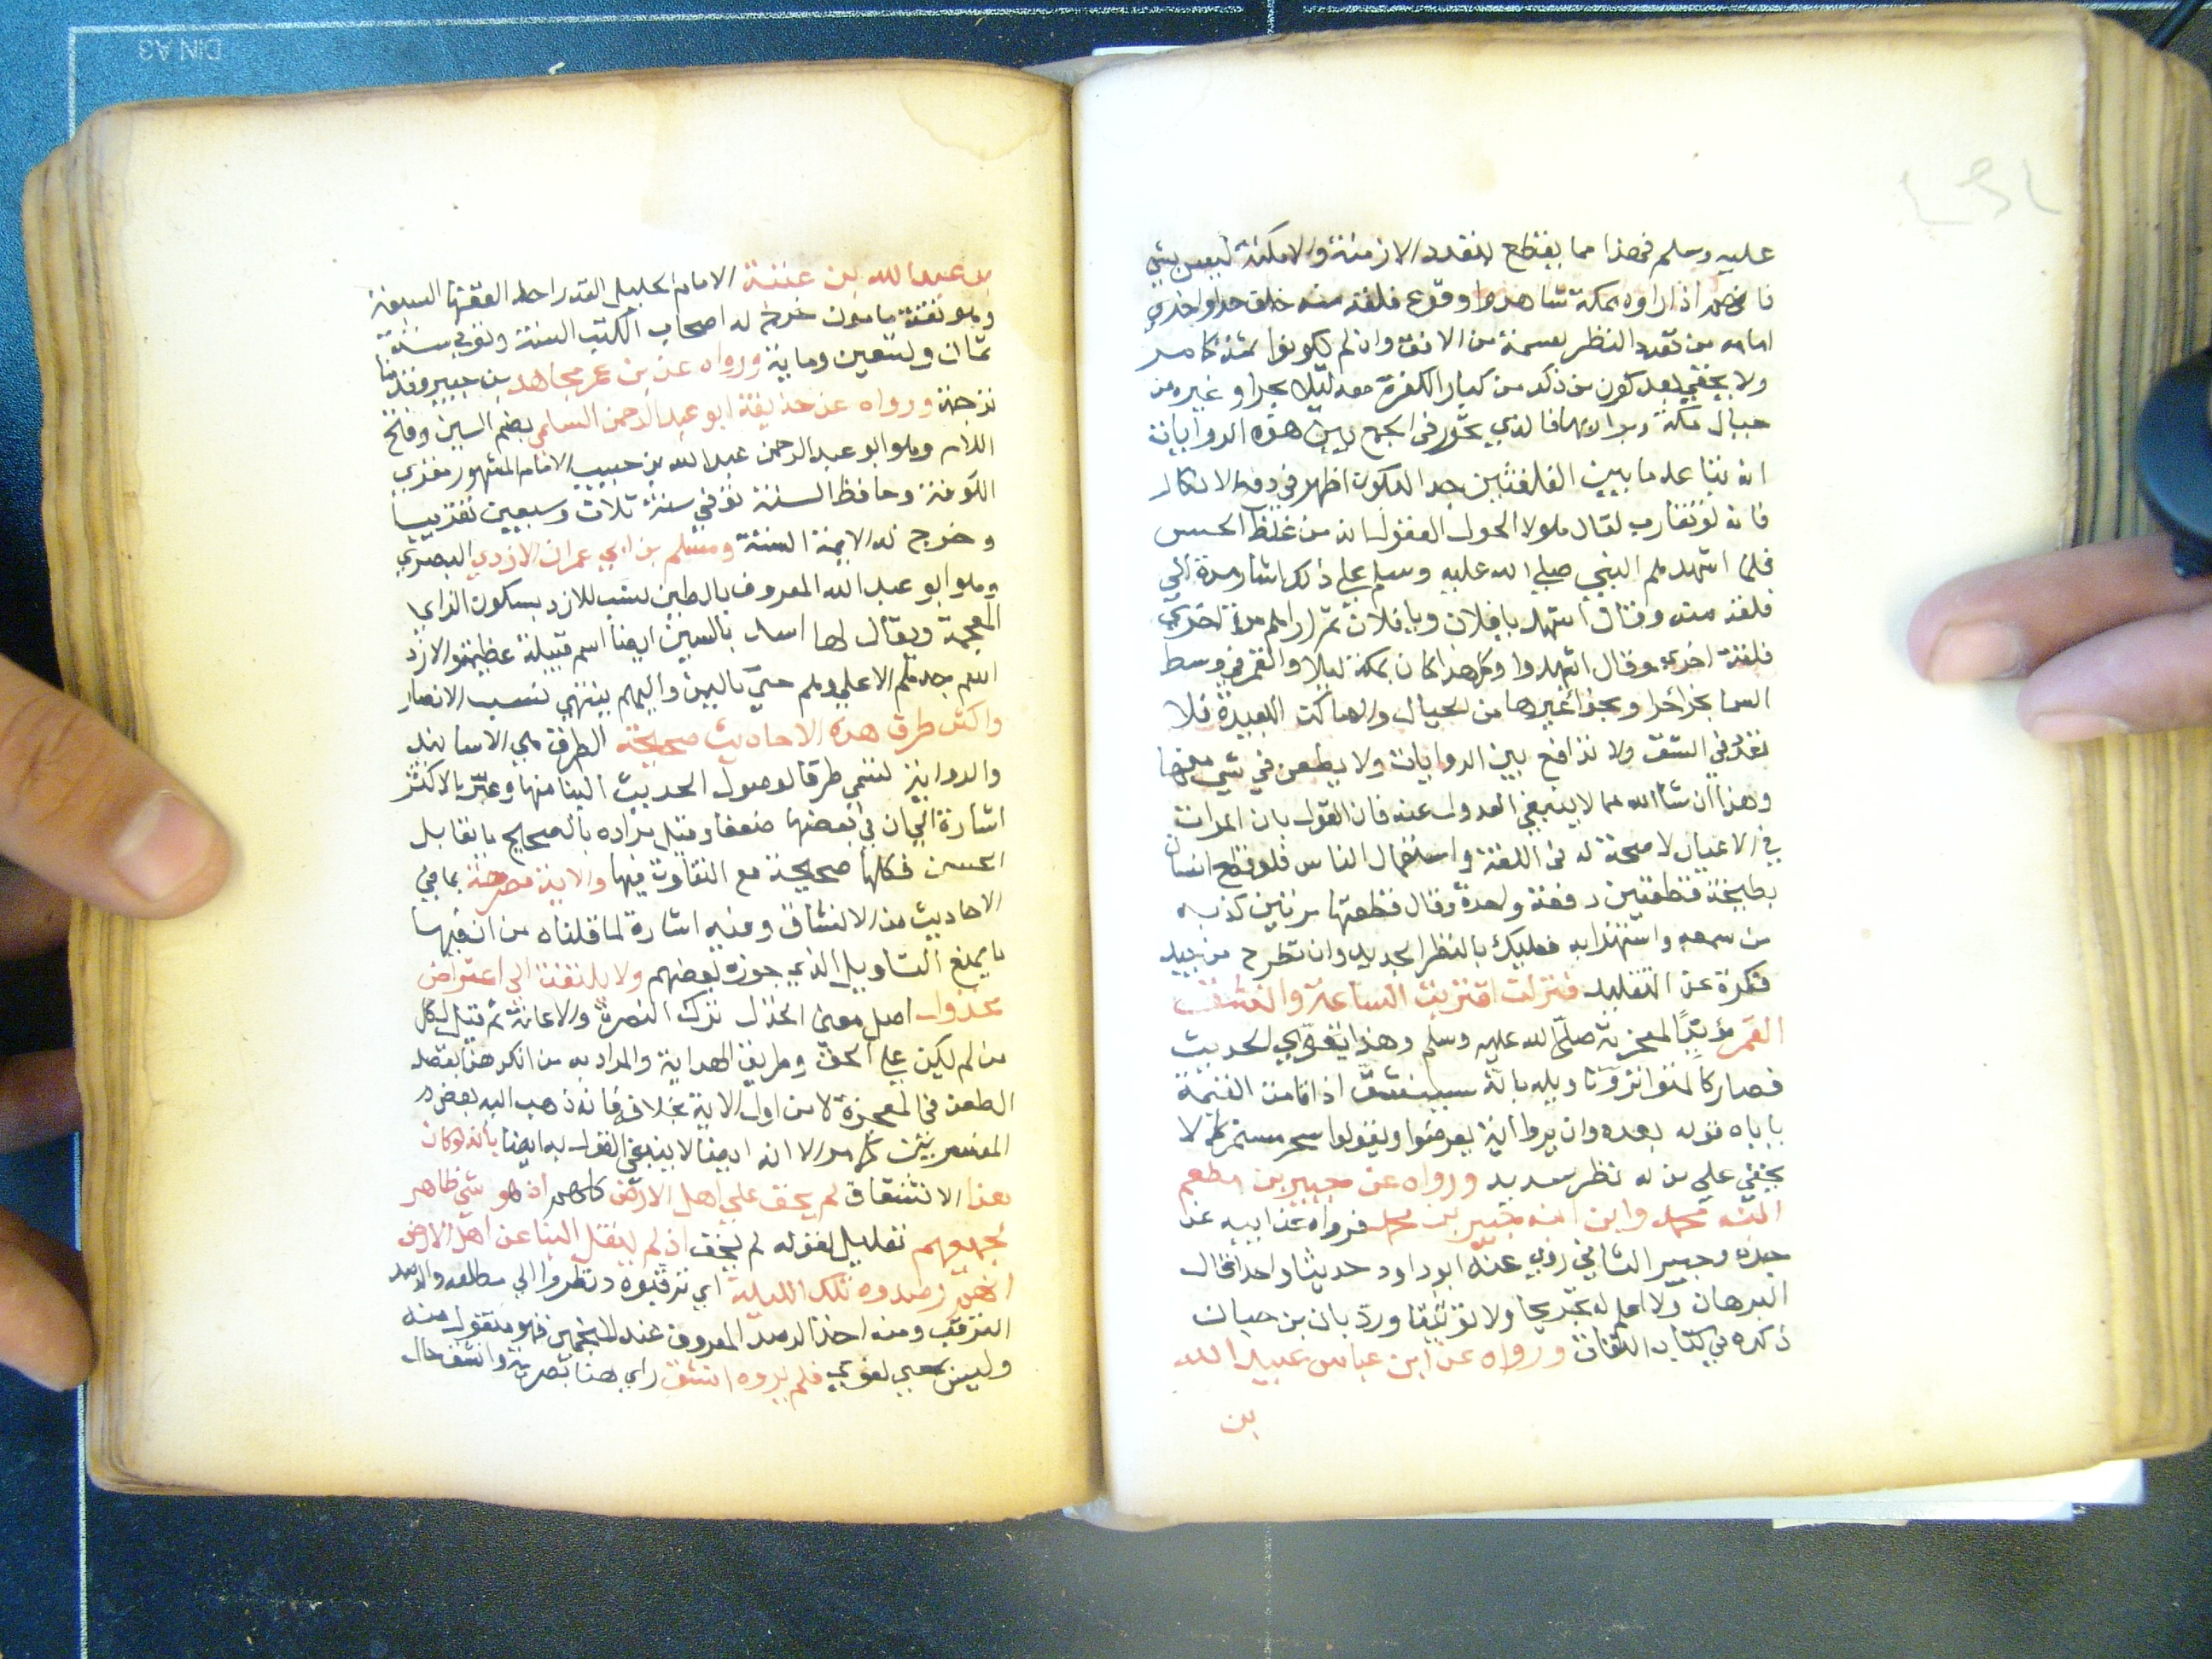 عليه وسلم فهذا مما يقطع بتعدد الازمنة والامكنة ليس بشي
اذا راوه بمكة شاهدوا وقوع فلقة منه خلف حراء واخرى
امامه من تعدد النظر بسمته من الافق وان لم يكونوا ثمة كامر
ولا يخفى بعد كون من ذكر من كبار الكفرة معه ليلا بحرا وغيره من
جبال مكة فالذي يحور في الجمع بين هذه الروايات
ان تباعد ما بين الفلقتين جدا ليكون اظهر في دفع الانكار
فانه لو تقارب لقال هولا الحول العقول انه من غلظ الحس
فلما اشهدهم النبي صلى الله عليه وسلم على ذلك اشار مرة الى
فلقة منه وقال اشهد يا فلان ويا فلان ثم اراهم مرة اخرى
فلقة اخرى وقال اشهدوا وكل هذا كان بمكة ليلا والقمر في وسط
السما بحرا وبحذا غيرها من الجبال والاماكن البعيدة فلا
تعدد في الشق ولا تدافع بين الروايات ولا يطعن في شي منها
وهذا ان شا الله مما لا ينبغي العدول عنه فان القول بان المرات
في الاعيان لا صحة له في اللغة واستعمال الناس فلو قطع انسان
بطيخة قطعتين دفعة واحدة وقال قطعتها مرتين كذبه
من سمعه واستهزا به فعليك بالنظر الجديد وان تطرح من جيد
فكرة عن التقليد فنزلت اقتربت الساعة وانشق
القمر مؤيدا لمعجزته صلى الله عليه وسلم وهذا يقوي الحديث
فصار كالمتواتر وتاويله بانه سينشق اذا قامت القيمة
ياباه قوله بعده وان يروا اية يعرضوا ويقولوا سحر مستمر كما لا
يخفى على من له نظر سديد ورواه عن جبير بن مطعم
ابنه محمد وابن ابنه جبير بن محمد فرواه عن ابيه عن
جده وجبير الثاني روى عنه ابو داود حديثا واحدا قال
البرهان ولا اعلم له تجريحا ولا توثيقا ورد بان بن حبان
ذكره في كتاب الثقات ورواه عن ابن عباس عبيد الله
بن
بن عبد الله بن عتبة الامام الجليل القدر احد الفقها السبعة
وهو ثقة مامون خرج له اصحاب الكتب الستة وتوفي سنة
ثمان وتسعين وماية ورواه عن بن عمر مجاهد بن جبير وقدمنا
ترجمته ورواه عن حذيفة ابو عبد الرحمن السلمي بضم السين وفتح
اللام وهو ابو عبد الرحمن عبد الله بن حبيب الامام المشهور مقري
الكوفة وحافظ السنة توفي سنة ثلاث وسبعين تقريبا
وخرج له الايمة الستة ومسلم بن ابي عمران الازدي البصري
وهو ابو عبد الله المعروف بالبطين نسب للازد بسكون الزاي
المعجمة ويقال لها اسد بالسين ايضا اسم قبيلة عظيمة والازد
اسم جدهم الاعلى وهم حي باليمن واليهم ينتهي نسب الانصار
واكثر طرق هذه الاحاديث صحيحة الطرق هي الاسانيد
والروايتز لتسمي طرقا لوصول الحديث الينا منها وعبر بالاكثر
اشارة الى ان في بعضها ضعفا وقيل مراده بالصحيح ما يقابل
الحسن فكلها صحيحة مع التفاوت فيها والاية مصرحة بما في
الاحاديث من الانشقاق وفيه اشارة لما قلناه من ان فيها
ما يمنع التاويل الذي جوزه بعضهم ولا يلتفت الى اعتراض
مخذول اصل معنى الخذل ترك النصرة والاعانة ثم قيل لكل
من لم يكن على الحق وطريق الهداية والمراد به من انكر هذا بقصد
الطعن في المعجزة لا من اول الاية بخلافه فانه ذهب اليه بعض
المفسرين كما مر الا انه ايضا لا ينبغي القول به ايضا بانه لو كان
هذا الانشقاق لم يخف على اهل الارض كلهم اذ هو شي ظاهر
لجميعهم تعليل لقوله لم يخف اذ لم ينقل الينا عن اهل الارض
انهم رصدوه تلك الليلة اي ترقبوه ونظروا الى مطلعه والرصد
الترقب ومنه اخذ الرصد المعروف عند المنجمين فهو منقول منه
وليس بمعنى لغوي فلم يروه انشق راى هنا بصرية وانشق حال